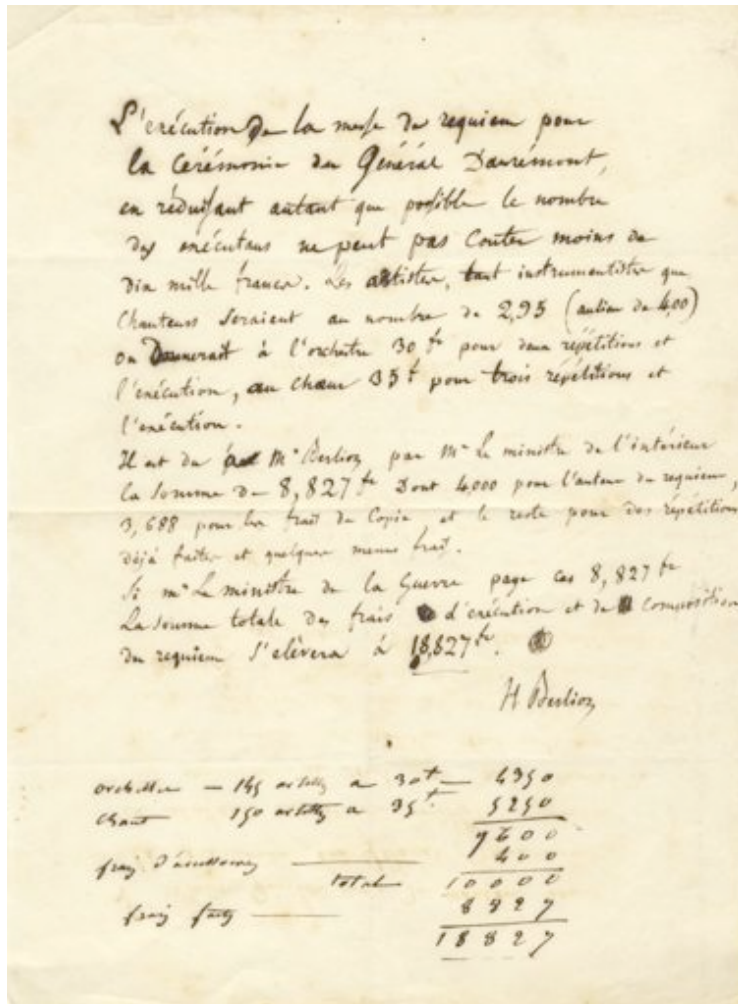 L'exécution de la messe de requiem pour
la Cérémonie du Général Danrémont,
en réduisant autant que possible le nombre
des exécutans ne peut pas couter moins de
dix mille francs. Les artistes, tant instrumentistes que
Chanteurs seraient au nombre de 295 (aulieu de 400)
on Donnerait à l'orchestre 30 fr pour deux répétitions et
l'exécution, au Chœur 35 f pour trois répétitions et
l'exécution.
Il est du à Mr Berlioz par Mr Le ministre de l'intérieur
la Somme de 8,827 fr Dont 4,000 pour l'auteur du requiem,
3,688 pour les frais de Copie, et le reste pour des répétitions
déjà faites et quelques menus frais.
Si mr Le ministre de la Guerre paye ces 8,827 fr
La Somme totale des frais d'exécution et de composition
du requiem S'elèvera à 18,827 fr.
H Berlioz
orchestre — 145 artistes a 30 f — 4350
Chant 150 artistes a 35 f. 5250
9600
frais 400
total 10000
frais faits — 8827
18827